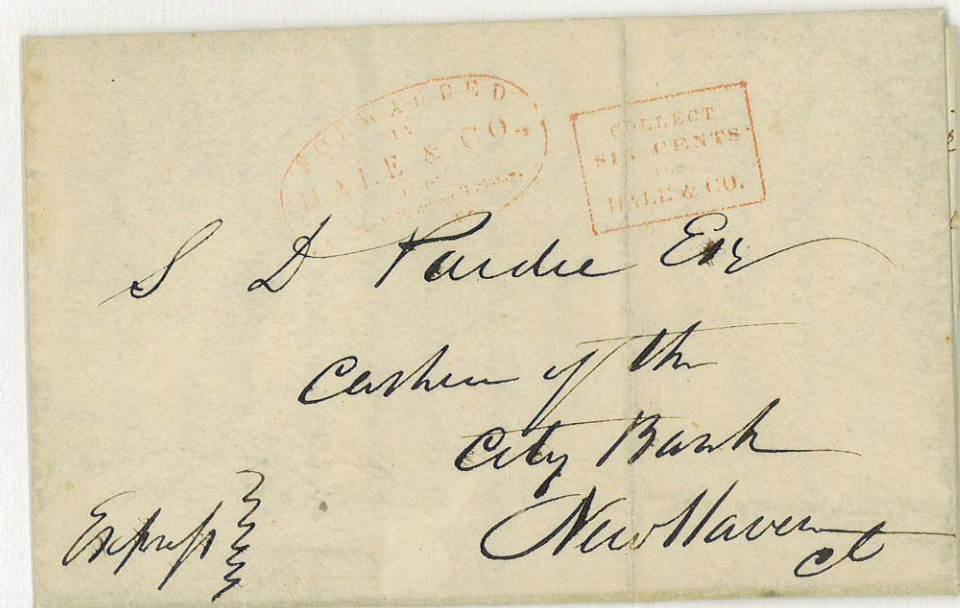 FORWARDED
BY
HALE & CO.
COLLECT
SIX CENTS
FOR
HALE & CO.
S D Pardee Esq
Cashier of the
City Bank
New Haven
ct
Express